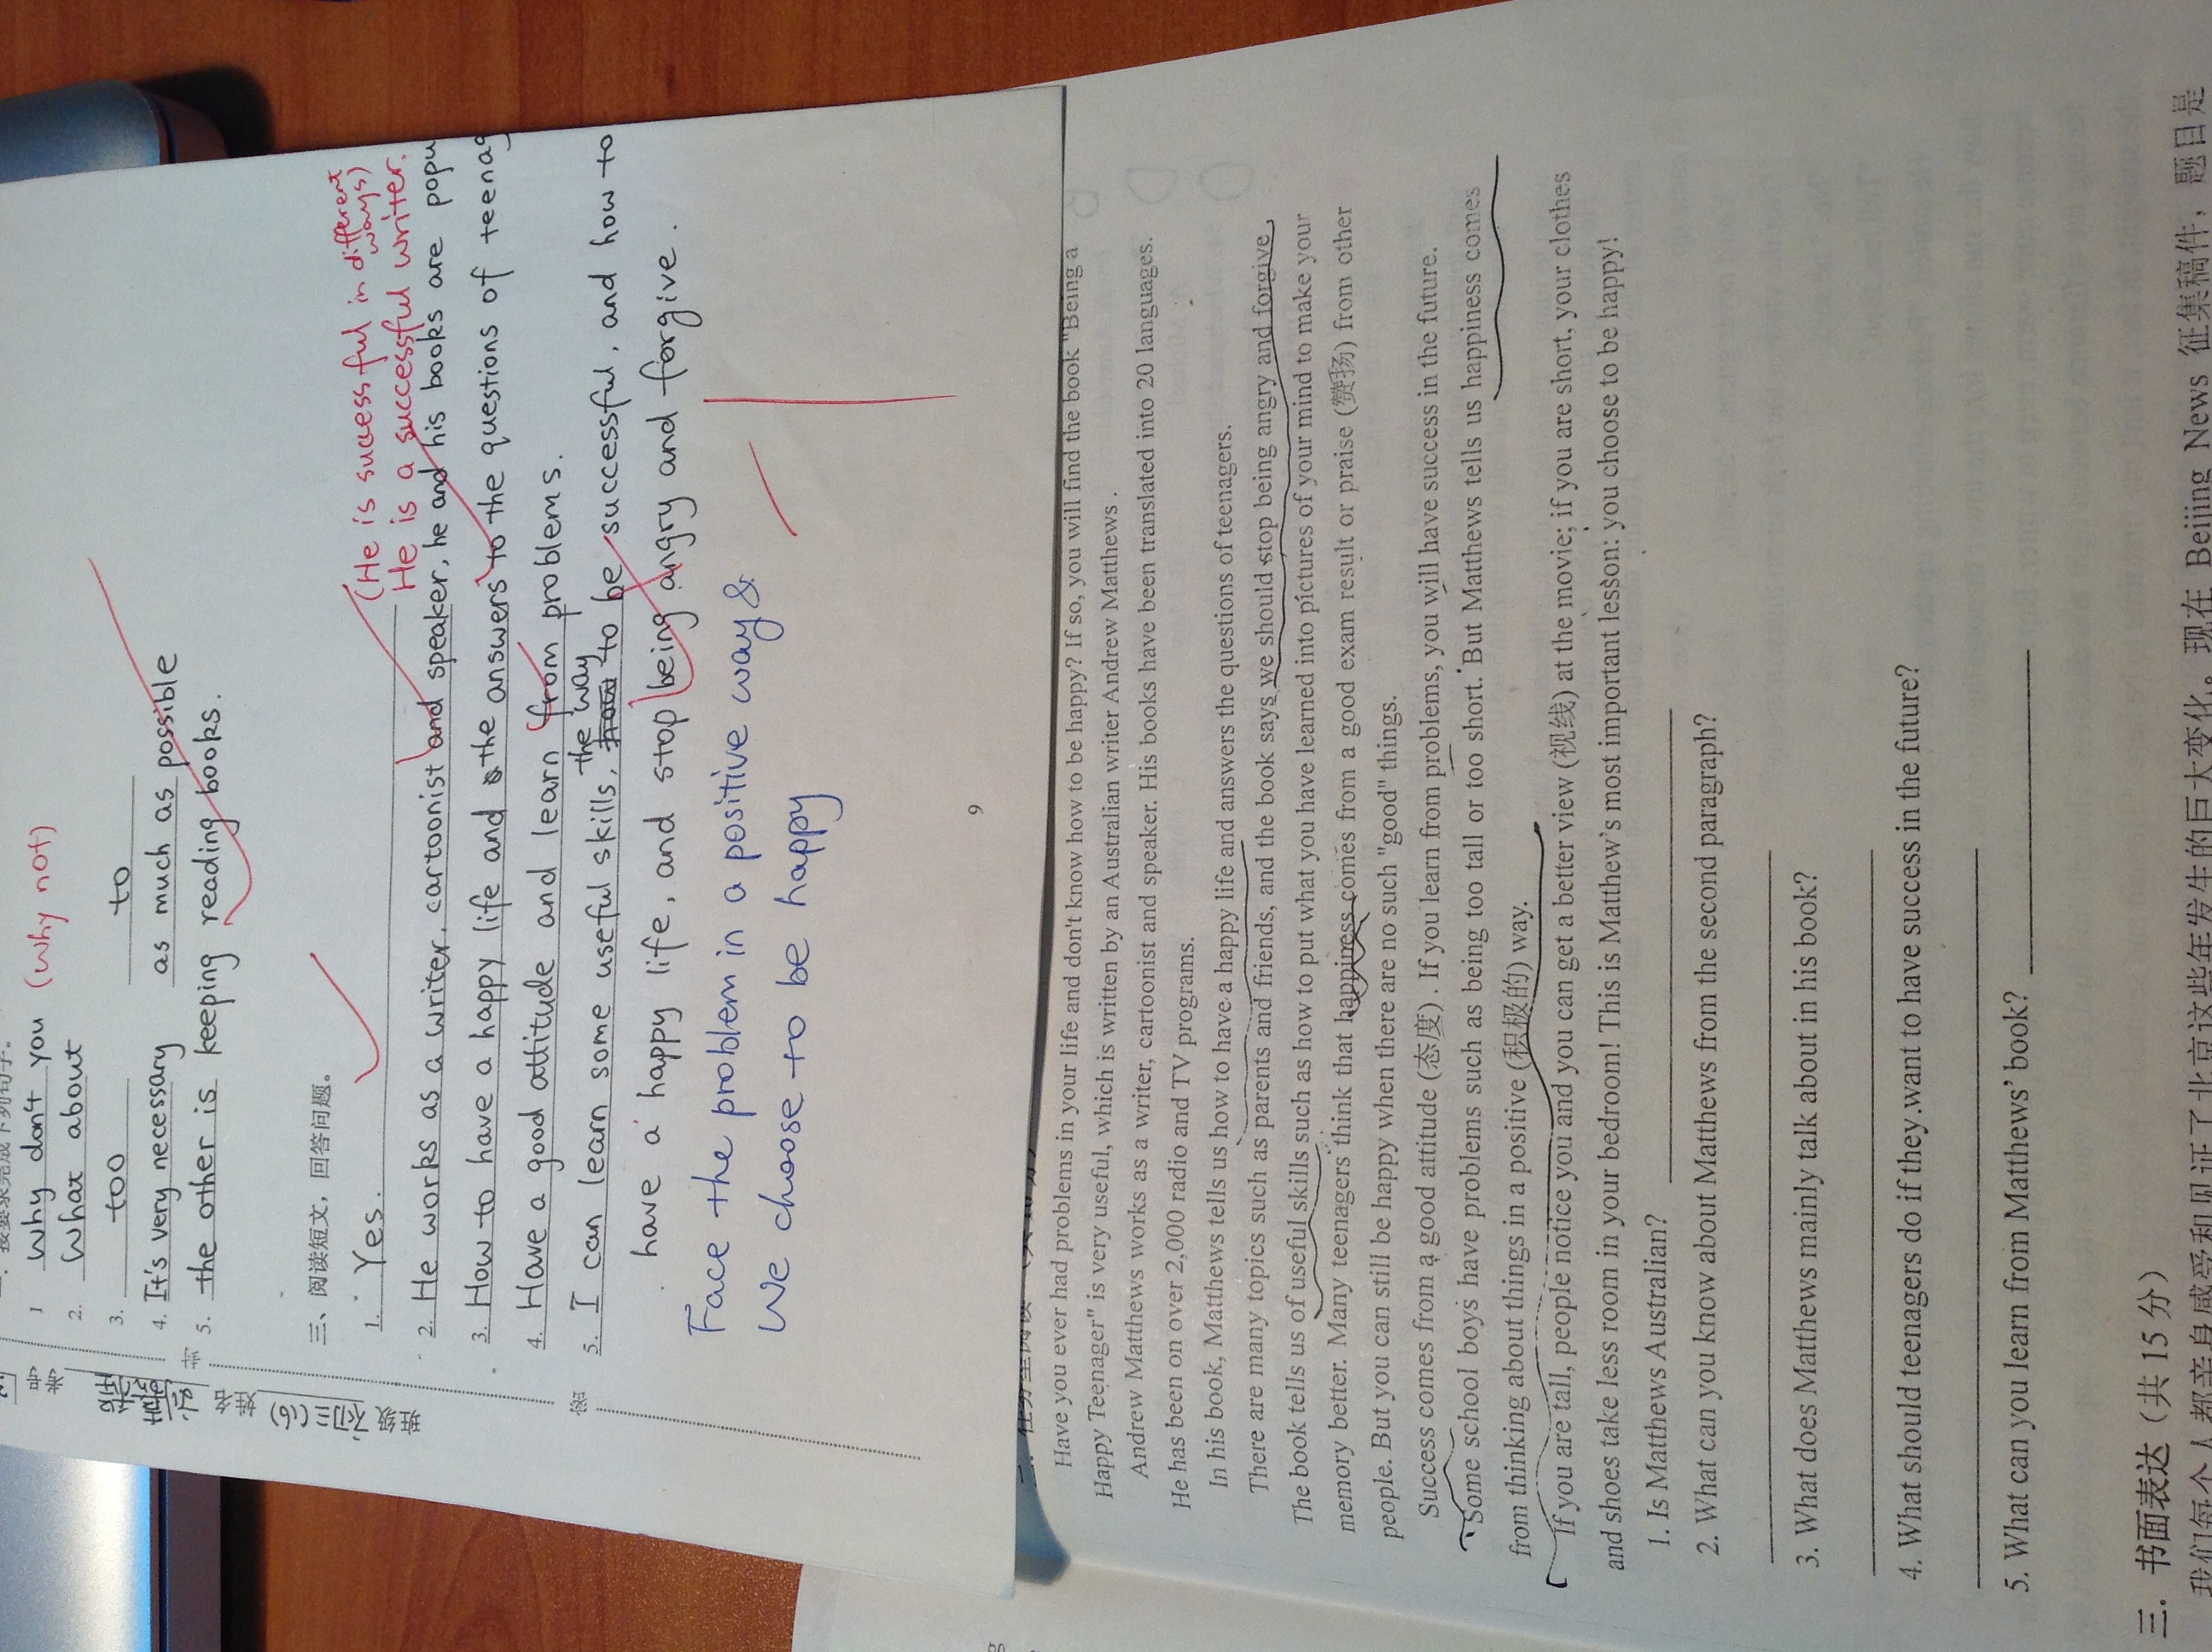 一. 按要求完成下列句子。
1 Why don't you (Why not)
2. What about
3. too to
4. It's very necessary as much as possible
5. the other is keeping reading books.
三、阅读短文，回答问题。
1. Yes.
(He is successful in different ways)
He is a successful writer.
2. He works as a writer, cartoonist and speaker, he and his books are popu
3. How to have a happy life and the answers to the questions of teenag
4. Have a good attitude and learn from problems.
5. I can learn some useful skills, the way to be successful, and how to
have a happy life, and stop being angry and forgive.
Face the problem in a positive way &
We choose to be happy
9
班级 初三(16) 姓名 考号
密 封
二. 任务型阅读 (共 10 分)
Have you ever had problems in your life and don't know how to be happy? If so, you will find the book "Being a
Happy Teenager" is very useful, which is written by an Australian writer Andrew Matthews .
Andrew Matthews works as a writer, cartoonist and speaker. His books have been translated into 20 languages.
He has been on over 2,000 radio and TV programs.
In his book, Matthews tells us how to have a happy life and answers the questions of teenagers.
There are many topics such as parents and friends, and the book says we should stop being angry and forgive.
The book tells us of useful skills such as how to put what you have learned into pictures of your mind to make your
memory better. Many teenagers think that happiness comes from a good exam result or praise (赞扬) from other
people. But you can still be happy when there are no such "good" things.
Success comes from a good attitude (态度) . If you learn from problems, you will have success in the future.
Some school boys have problems such as being too tall or too short. But Matthews tells us happiness comes
from thinking about things in a positive (积极的) way.
If you are tall, people notice you and you can get a better view (视线) at the movie; if you are short, your clothes
and shoes take less room in your bedroom! This is Matthew's most important lesson: you choose to be happy!
1. Is Matthews Australian?
2. What can you know about Matthews from the second paragraph?
3. What does Matthews mainly talk about in his book?
4. What should teenagers do if they want to have success in the future?
5. What can you learn from Matthews' book?
三. 书面表达（共 15 分）
我们每个人都亲身感受和见证了北京这些年发生的巨大变化。现在 Beijing News 征集稿件，题目是